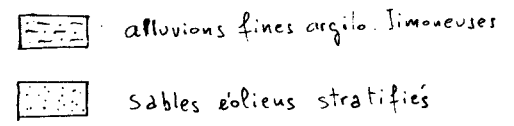 alluvions fines argilo.limoneuses
sables éoliens stratifiés